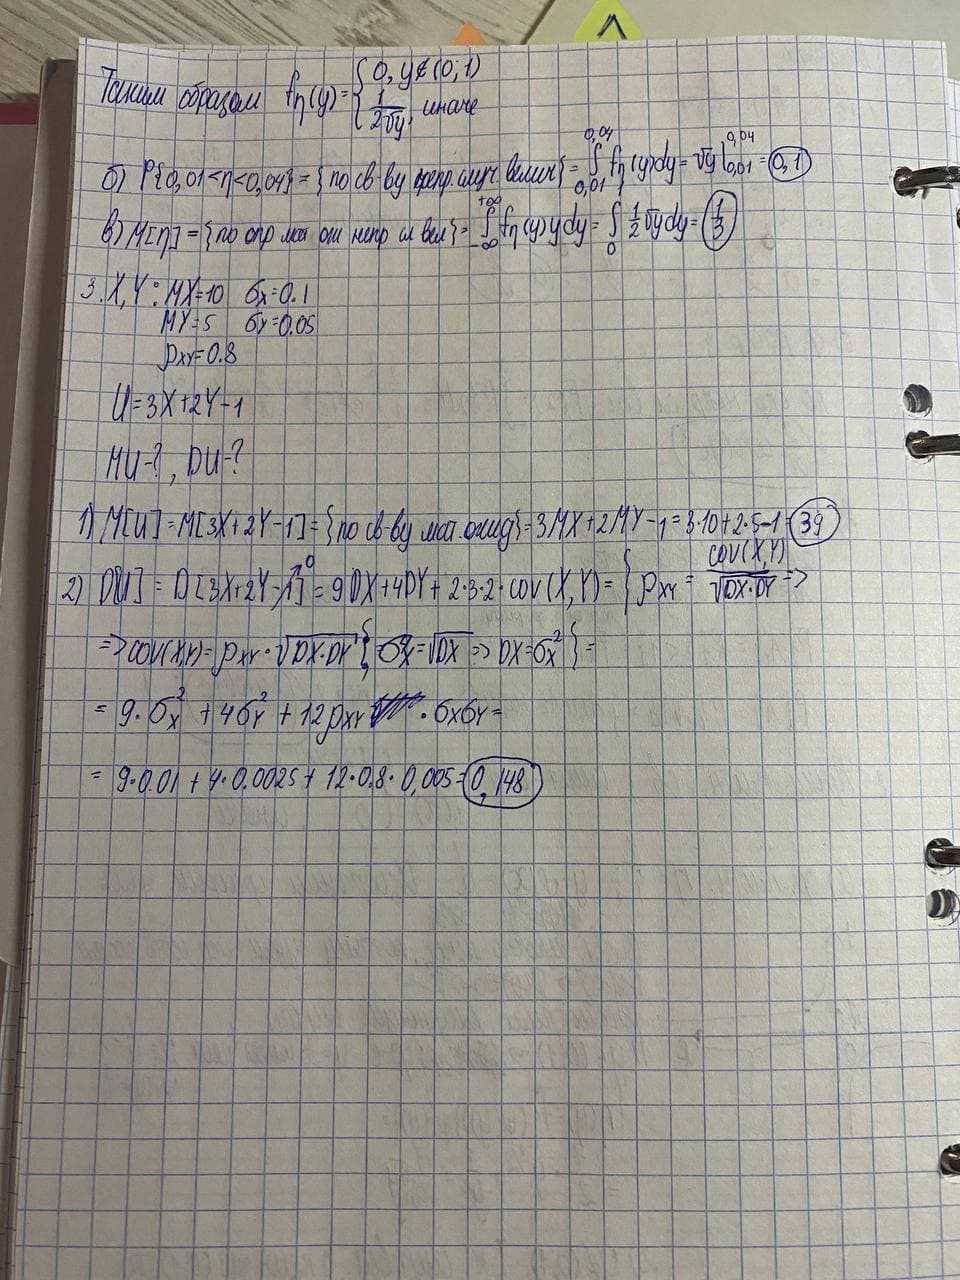 Таким образом fη(y) = { 0, y∉(0;1)
1/(2√y), иначе
б) P{0,01<η<0,04} = {по св-ву непр. случ. велич} = ∫_{0,01}^{0,04} fη(y)dy = √y |_{0,01}^{0,04} = 0,1
в) M[η] = {по опр мат ож непр сл вел} = ∫_{-∞}^{+∞} fη(y)ydy = ∫_0 1/2 √y dy = 1/3
3. X,Y: MX=10 σx=0.1
MY=5 σY=0.05
ρXY=0.8
U=3X+2Y-1
MU-?, DU-?
1) M[U] = M[3X+2Y-1] = {по св-ву мат. ожид} = 3MX+2MY-1 = 3·10+2·5-1 = 39
2) D[U] = D[3X+2Y-1]^0 = 9DX+4DY+2·3·2·cov(X,Y) = { ρXY = cov(X,Y)/√(DX·DY) =>
=> cov(X,Y) = ρXY·√(DX·DY) } { σx=√DX => DX=σx² } =
= 9·σx² + 4σY² + 12ρXY · σxσY =
= 9·0.01 + 4·0.0025 + 12·0.8·0,005 = 0,148